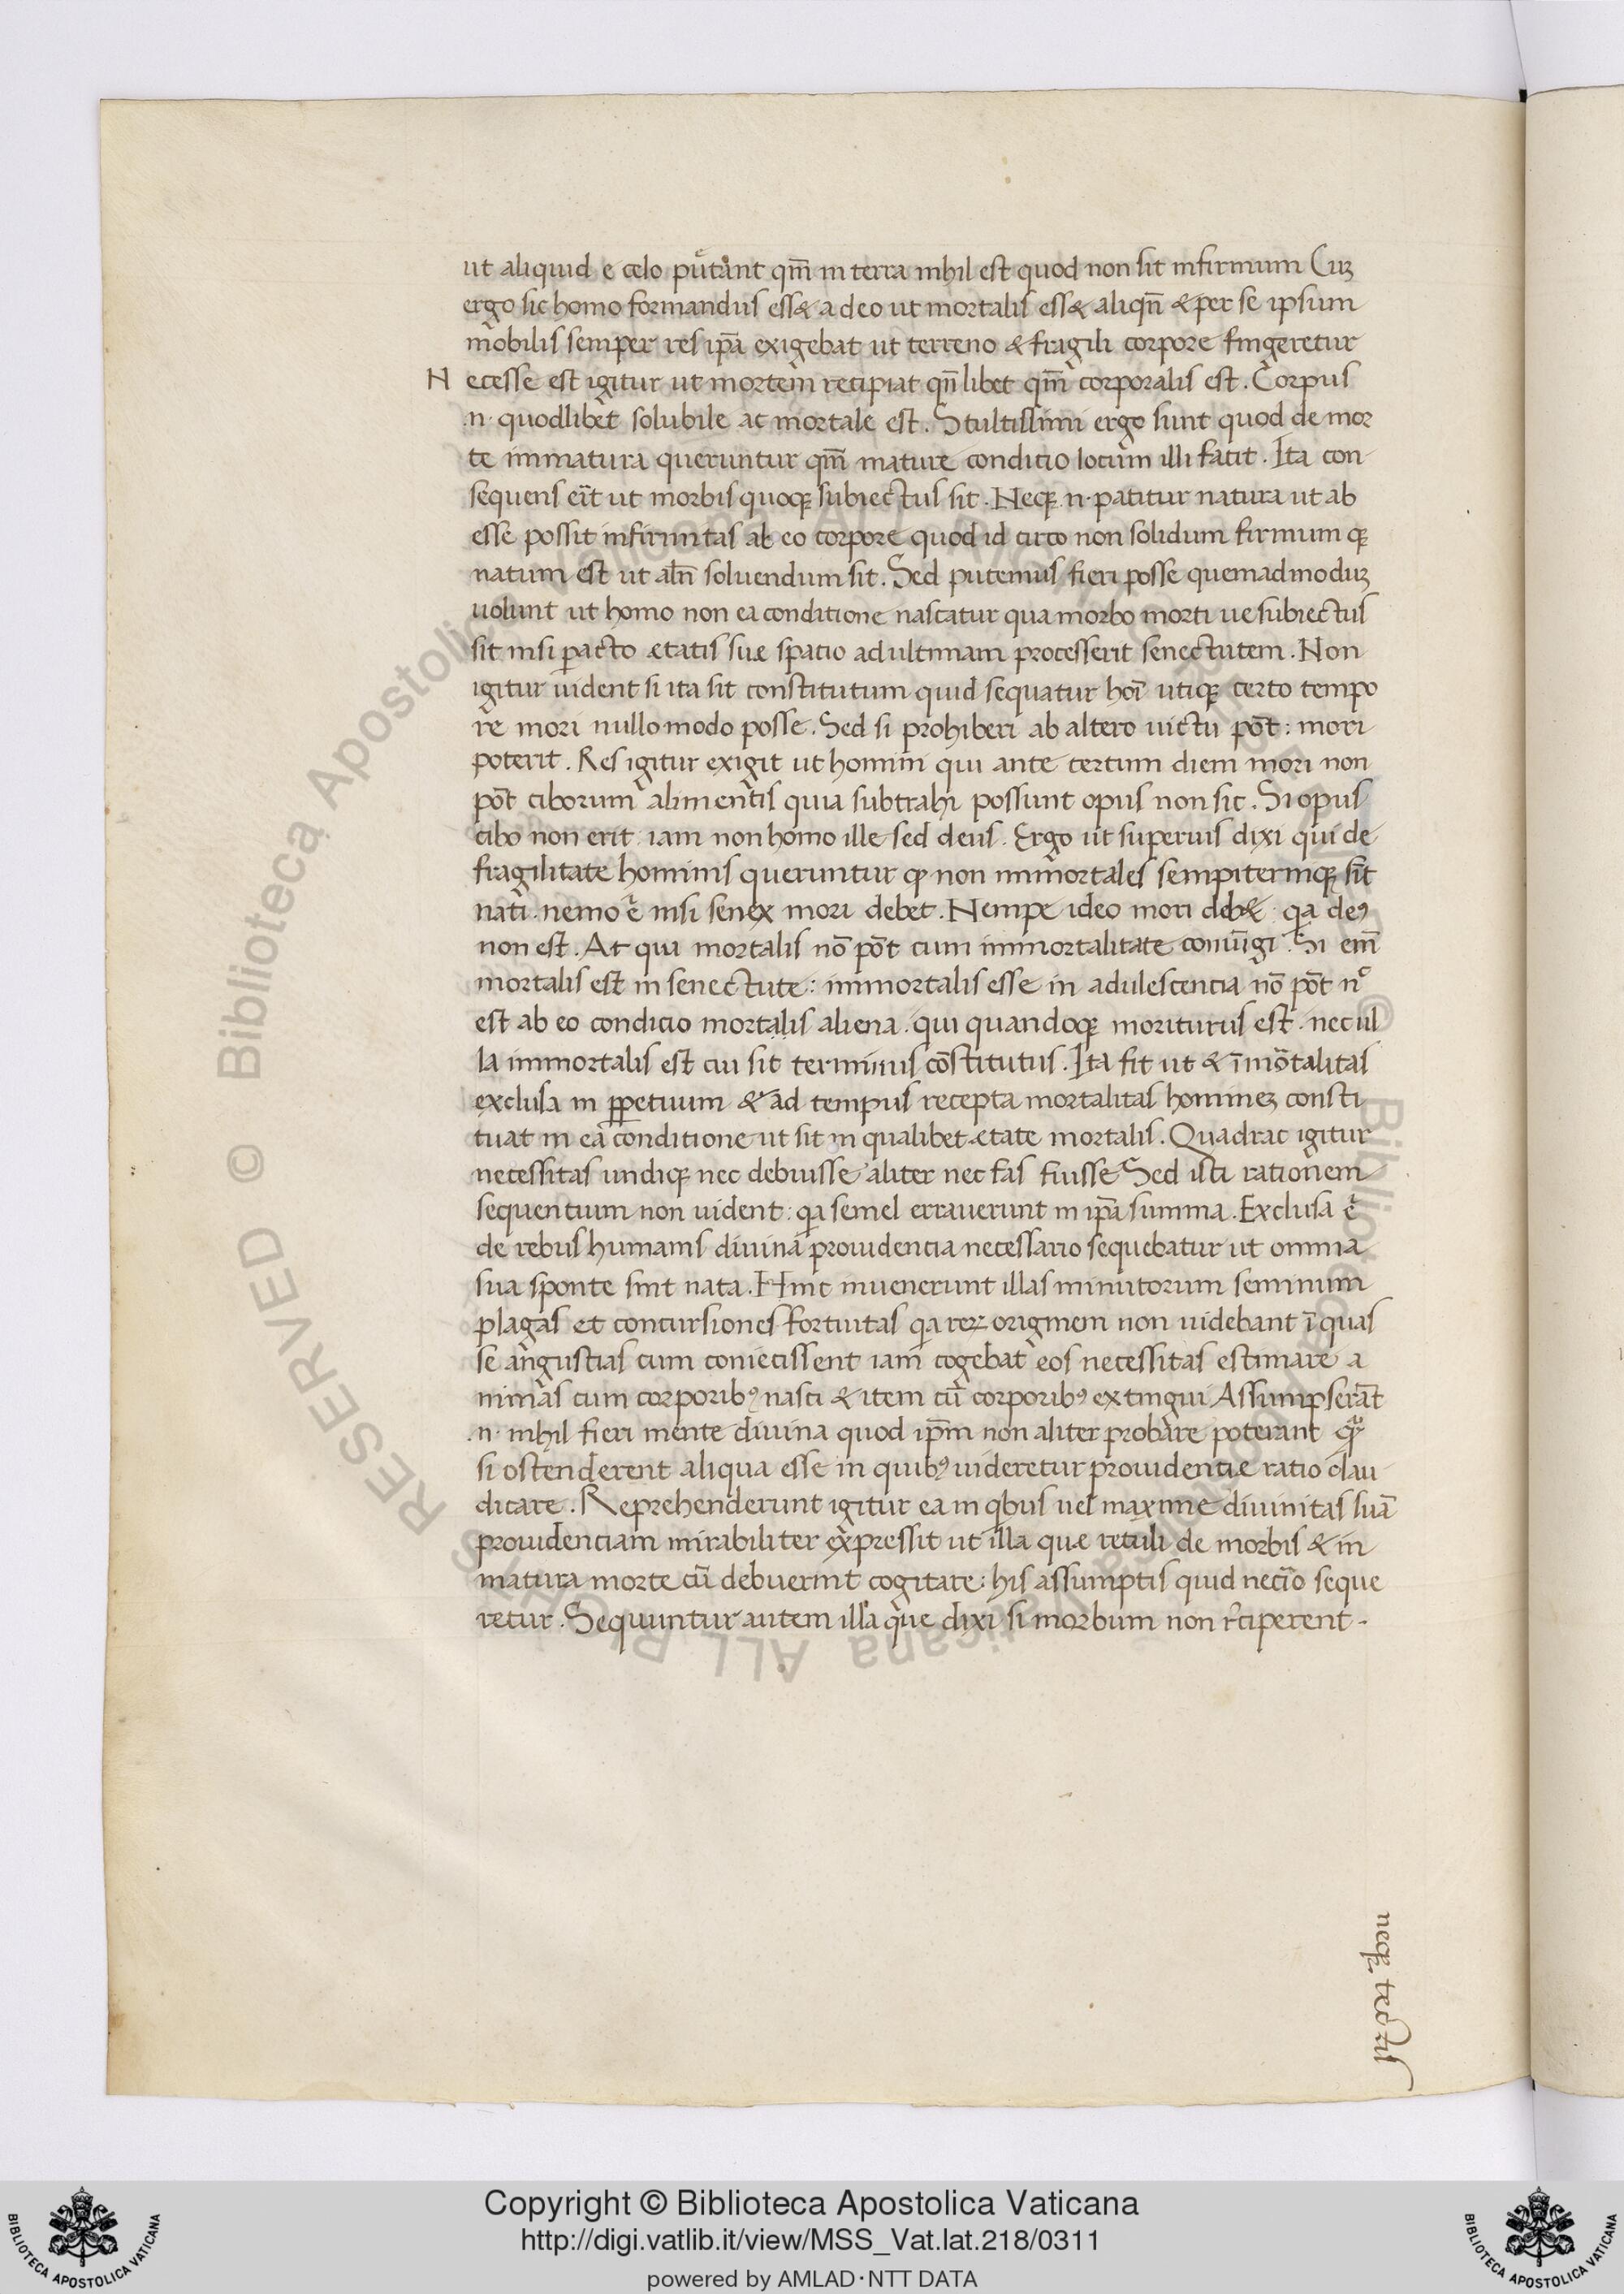 ut aliquid e celo putant qm̄ in terra nihil est quod non sit infirmum Cuꝫ
ergo sic homo formandus ess& a deo ut mortalis ess& aliqn̄ & per se ipsum
mobilis semper res ip̄a exigebat ut terreno & fragili corpore fingeretur
N ecesse est igitur ut mortem recipiat qn̄libet qm̄ corporalis est. Corpus
.n. quodlibet solubile ac mortale est. Stultissimi ergo sunt quod de mor
te immatura queruntur qm̄ mature condicio locum illi facit. Ita con
sequens eīt ut morbis quoqꝫ subiectus sit. Neqꝫ .n. patitur natura ut ab
esse possit infirmitas ab eo corpore quod id circo non solidum firmum qꝫ
natum est ut aln̄ soluendum sit. Sed putemus fieri posse quemadmoduꝫ
uolunt ut homo non ea conditione nascatur qua morbo morti ue subiectus
sit nisi ꝑacto ętatis suę spatio ad ultimam processerit senectutem. Non
igitur uident si ita sit constitutum quid sequatur hoī utiqꝫ certo tempo
re mori nullo modo posse. Sed si prohiberi ab altero uictu pōt: mori
poterit. Res igitur exigit ut homini qui ante certum diem mori non
pōt ciborum alimentis quia subtrahi possunt opus non sic. Si opus
cibo non erit iam non homo ille sed deus. Ergo ut superius dixi qui de
fragilitate hominis queruntur ꝙ non immortales sempiterniqꝫ sīt
nati. nemo ē nisi senex mori debet. Nempe ideo mori deb& qa deꝰ
non est. At qui mortalis nō pōt cum immortalitate coniūgi. Si em̄
mortalis est in senectute: immortalis esse in adulescencia nō pōt nͦ
est ab eo condicio mortalis aliena. qui quandoqꝫ moriturus est. nec ul
la immortalis est cui sit terminus cōstitutus. Ita fit ut & īmortalitas
exclusa in ꝑpetuum & ad tempus recepta mortalitas homineꝫ consti
tuat in ea conditione ut sit in qualibet ętate mortalis. Quadrac igitur
necessitas undiqꝫ nec debuisse aliter nec fas fuisse Sed isti rationem
sequentium non uident: qa semel errauerunt in ip̄a summa. Exclusa ē
de rebus humanis diuina prouidencia necessario sequebatur ut omnia
sua sponte sint nata. Hinc inuenerunt illas minutorum seminum
plagas et concursiones fortuitas qa reꝝ originem non uidebant ī quas
se angustias cum coniecissent iam cogebat eos necessitas estimare a
nimas cum corporibꝰ nasci & item cū corporibꝰ extingui Assumpserāt
.n. nihil fieri mente diuina quod ip̄m non aliter probare poterant qᷓ
si ostenderent aliqua esse in quibꝰ uideretur prouidentię ratio clau
dicare. Reprehenderunt igitur ea in qbus uel maxime diuinitas suā
prouidenciam mirabiliter expressit ut illa quę retuli de morbis & in
matura morte cū debuerint cogitare: his assumptis quid necīo seque
retur. Sequuntur autem illa que dixi si morbum non rciperent.
neqꝫ tectis
Copyright © Biblioteca Apostolica Vaticana
http://digi.vatlib.it/view/MSS_Vat.lat.218/0311
powered by AMLAD·NTT DATA